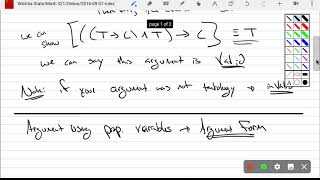 Wichita State/Math 321/Online/2016-09-02-rules
page 1 of 2
we can show [((T → C) ∧ T) → C] ≡ T
we can say this argument is Valid
Note: if your argument was not tautology → invalid
Argument using prop. variables → Argument Form